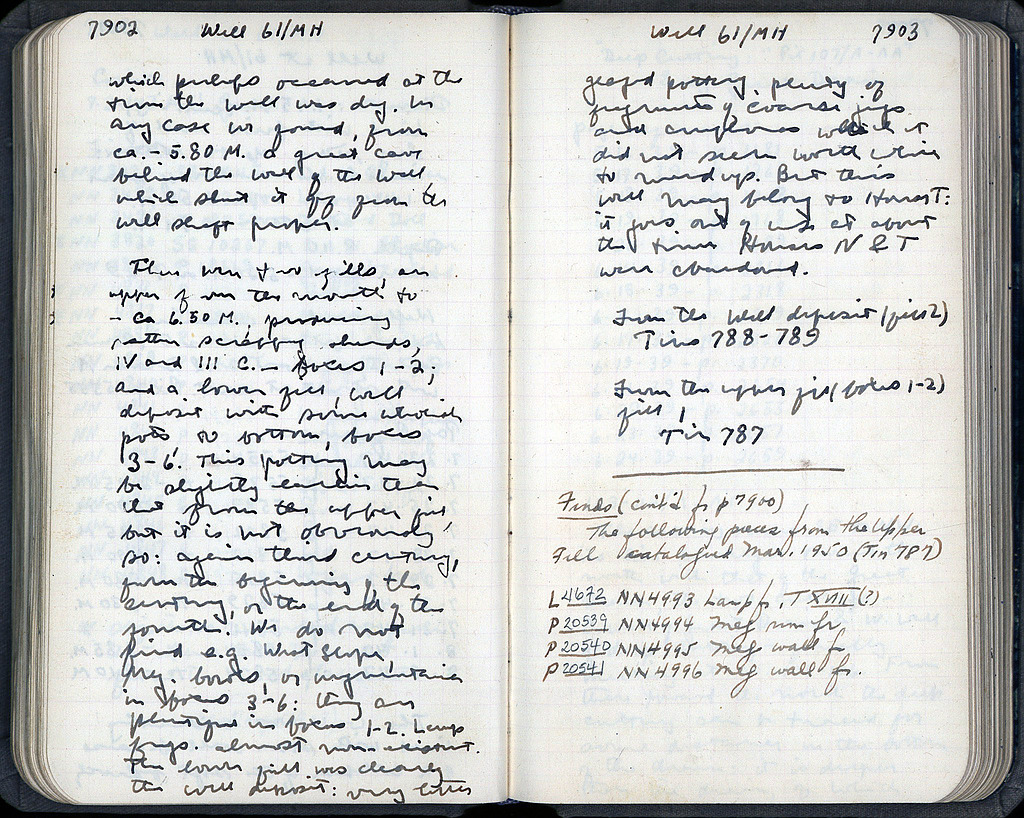 7902 Well 61/MH
which perhaps occurred at the
time the well was dug. In
any case we found, from
ca. - 5.80 M. a great cave
behind the wall of the well
which shut it off from the
well shaft proper.
There were two fills, an
upper from the mouth to
- ca 6.50 M., producing
rather scrappy sherds,
IV and III C. - boxes 1-2;
and a lower fill, well
deposit with some whole
pots at bottom, boxes
3-6. This pottery may
be slightly earlier than
that from the upper fill,
but it is not obviously
so: again third century,
from the beginning of the
century, or the end of the
fourth. We do not
find e.g. West Slope,
Meg. bowls, or
in boxes 3-6: they are
plentiful in boxes 1-2. Lamp
frags. almost non existent.
The lower fill was clearly
the well deposit: very little
Well 61/MH 7903
glazed pottery, plenty of
fragments of coarse jugs
and amphoras which it
did not seem worth while
to mend up. But this
well may belong to House T:
it goes out of use at about
the time Houses N & T
were abandoned.
From the well deposit (fill 2)
Tins 788-789
From the upper fill (boxes 1-2)
fill,
Tin 787
Finds (cont'd fr p 7900)
The following pieces from the Upper
Fill catalogued Mar. 1950 (Tin 787)
L 4672 NN 4993 Lamp fr. T XVIII (?)
P 20539 NN 4994 Meg rim fr.
P 20540 NN 4995 Meg wall fr
P 20541 NN 4996 Meg wall fr.